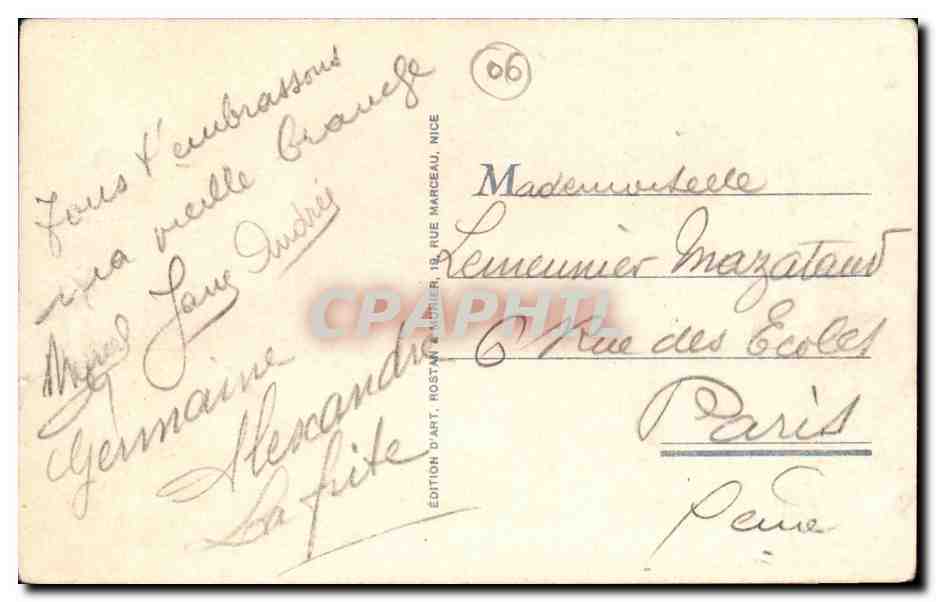 06
Tous t'embrassons
ma vieille branche
Marcel Jane Andrée
Germaine
Alexandre
Lafite
ÉDITION D'ART, ROSTAN & MUNIER, 19, RUE MARCEAU, NICE
Mademoiselle
Lemeunier Mazataud
6 Rue des Ecoles
Paris
5eme
CPAPHIL